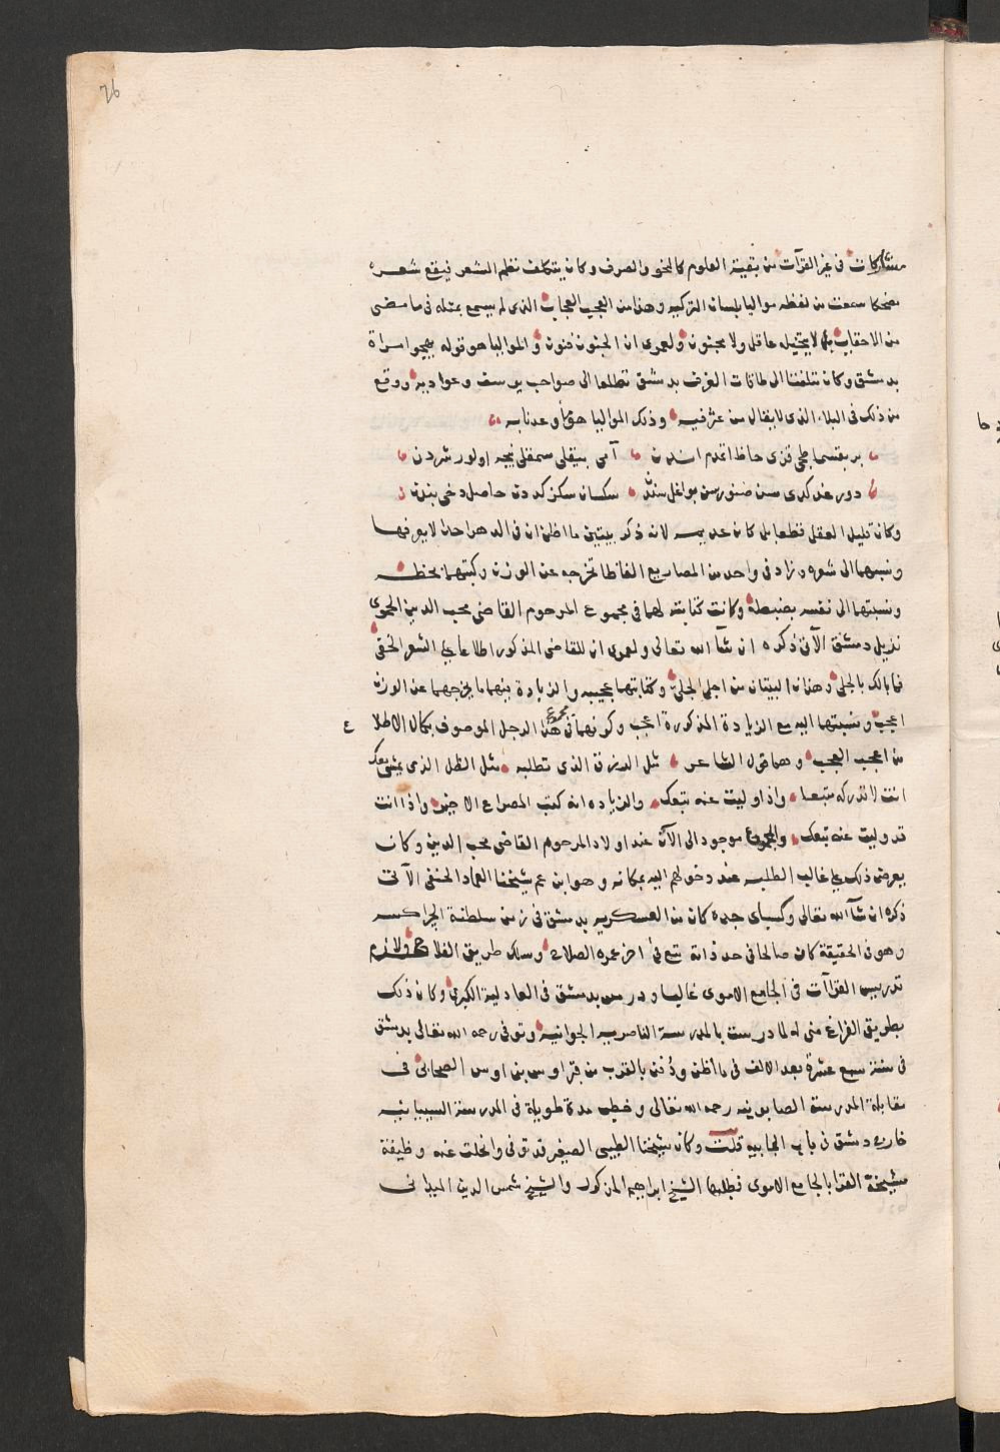 26
مشاركات في غير القرآت من بقية العلوم كالنحو والصرف وكان يتكلف نظم الشعر فيقع شعره
مضحكا سمعت من لفظه مواليا بلسان التركيه وهذا من العجب العجاب الذى لم يسمع بمثله في ما مضى
من الاحقاب بل لا يتخيله عاقل ولا مجنون ولعمرى ان الجنون فنون والمواليا هو قوله يهجو امراة
بدمشق وكان تتلفتنا الى طاقات الغرف بدمشق تطلعا الى صواحب يوسف وعواديه ووقع
من ذلك في البلاء الذى لا يقال من عثر فيه وذلك المواليا هو
وكان قليل العقل قطعا بل كان عديمه لانه ذكر بيتين ما اظن ان في الدهر احدا لا يعرفهما
ونسبهما الى شعره وزاد في واحد من المصاريع الفاظا تخرجه عن الوزن وكتبهما بخطه
ونسبتهما الى نفسه بضبطه وكانت كتابته لهما في مجموع المرحوم القاضى محب الدين الحموى
نزيل دمشق الآتى ذكره ان شآ الله تعالى ولعمرى ان للقاضى المذكور اطلاعا على الشعر الخفى
فما بالك بالجلى وهذان البيتان من اجلى الجلى وكتابتهما عجيبه والزيادة بينهما ما يخرجهما عن الوزن
اعجب ونسبتهما اليه مع الزيادة المذكورة اعجب وكونهما في مجموع هذا الرجل الموصوف بكمال الاطلا
ع
من اعجب العجب وهما قول الشاعر مثل الرزق الذى تطلبه مثل الظل الذى يمشى معك
انت لا تدركه متبعا واذا وليت عنه تبعك والزيادة انه كتب المصراع الاخير واذا انت
قد وليت عنه تبعك والمجموع موجود الى الآن عند اولاد المرحوم القاضى محب الدين وكان
يعرض ذلك على غالب الطلبه عند دخولهم اليه بمكانه وهو ابن عم شيخنا العماد الحنفى الآتى
ذكره ان شآ الله تعالى وكسباى جده كان من العسكريه بدمشق في زمن سلطنة الجراكسه
وهو في الحقيقة كان صالحا في حد ذاته تبع في اخر عمره الصلاح وسلك طريق الفلاح ولازم
تدريس القرآات في الجامع الاموى غالبا ودرس بدمشق في العادلية الكبرى وكان ذلك
بطريق الفراغ منى له لما درست بالمدرسة الناصريه الجوانيه وتوفى رحمه الله تعالى بدمشق
في سنة سبع عشرة بعد الالف في ما اظن ودفن بالقرب من قبر اوس بن اوس الصحابى في
مقابلة المدرسة الصابونيه رحمه الله تعالى وخطب مدة طويلة في المدرسة السيبائيه
خارج دمشق في باب الجابيه قلت وكان شيخنا الطيبى الصغير قد توفى وانحلت عنه وظيفة
مشيخة القرا بالجامع الاموى فطلبها الشيخ ابراهيم المذكور والشيخ شمس الدين الميدانى